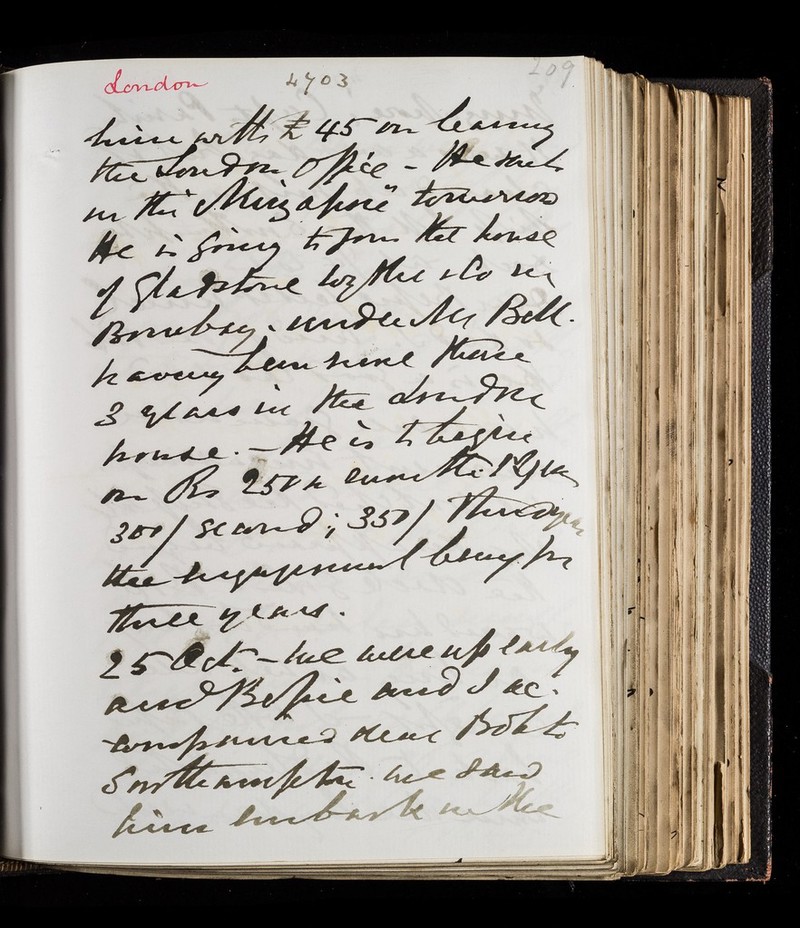 London 4703 209
him with £45 on leaving
the London Office - He sails
in the "Mirzapore" tomorrow
He is going to join the house
of Gladstone Wyllie & Co in
Bombay. under Mr Bell.
having been some three
3 years in the London
house. - He is to begin
on Rs 250 a month 1st year
300/ second; 350/ Third year
the engagement being for
three years.
25 Oct. - We were up early
and Bessie and I ac-
companied dear Bob to
Southampton. We saw
him embark in the